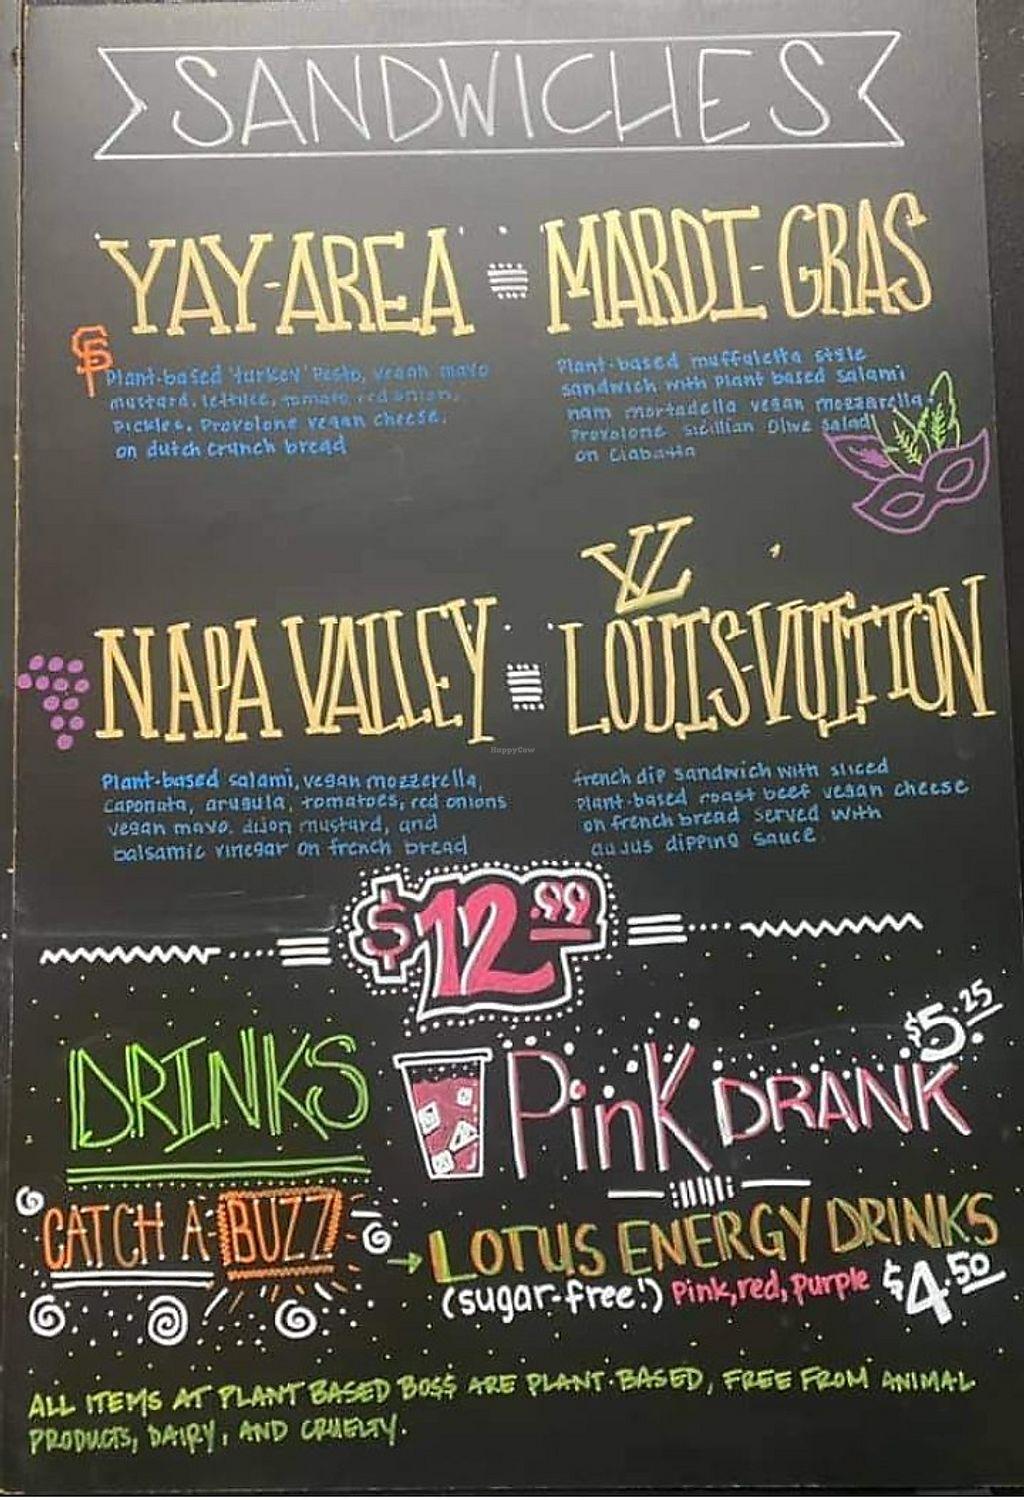 SANDWICHES
YAY-AREA
MARDI-GRAS
SF
Plant-based 'turkey' Pesto, vegan mayo
mustard, lettuce, tomato red onion,
Pickles, Provolone vegan cheese,
on dutch crunch bread
Plant-based muffuletta style
sandwich with Plant based salami
ham mortadella vegan mozzarella,
Provolone sicillian Olive salad
on Ciabatta
NAPA VALLEY
LV
LOUIS-VUITTON
Plant-based salami, vegan mozzerella,
Caponata, arugula, tomatoes, red onions
vegan mayo. dijon mustard, and
balsamic vinegar on french bread
french dip sandwich with sliced
Plant-based roast beef vegan cheese
on french bread served with
au jus dipping sauce
HappyCow
$12.99
DRINKS
Pink DRANK
$5.25
CATCH A BUZZ
LOTUS ENERGY DRINKS
(sugar-free!) Pink, red, Purple $4.50
ALL ITEMS AT PLANT BASED BO$$ ARE PLANT-BASED, FREE FROM ANIMAL
PRODUCTS, DAIRY, AND CRUELTY.